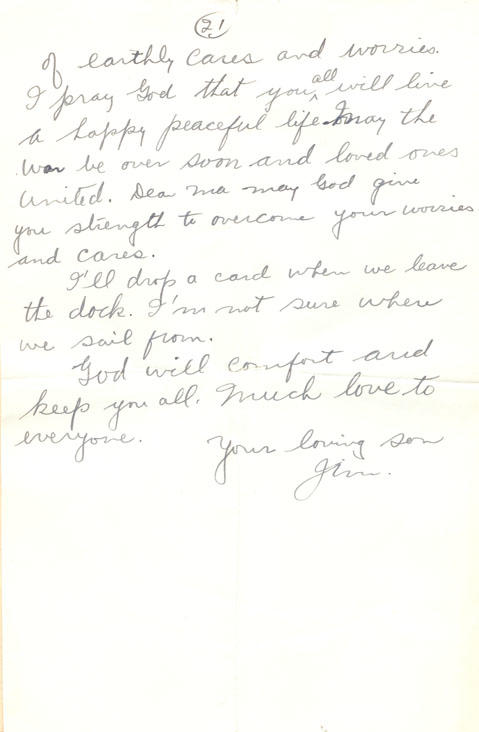 21
of earthly cares and worries.
I pray God that you all will live
a happy peaceful life. may the
war be over soon and loved ones
united. Dear ma may God give
you strength to overcome your worries
and cares.
I'll drop a card when we leave
the dock. I'm not sure where
we sail from.
God will comfort and
keep you all. Much love to
everyone.
Your loving son
Jim.